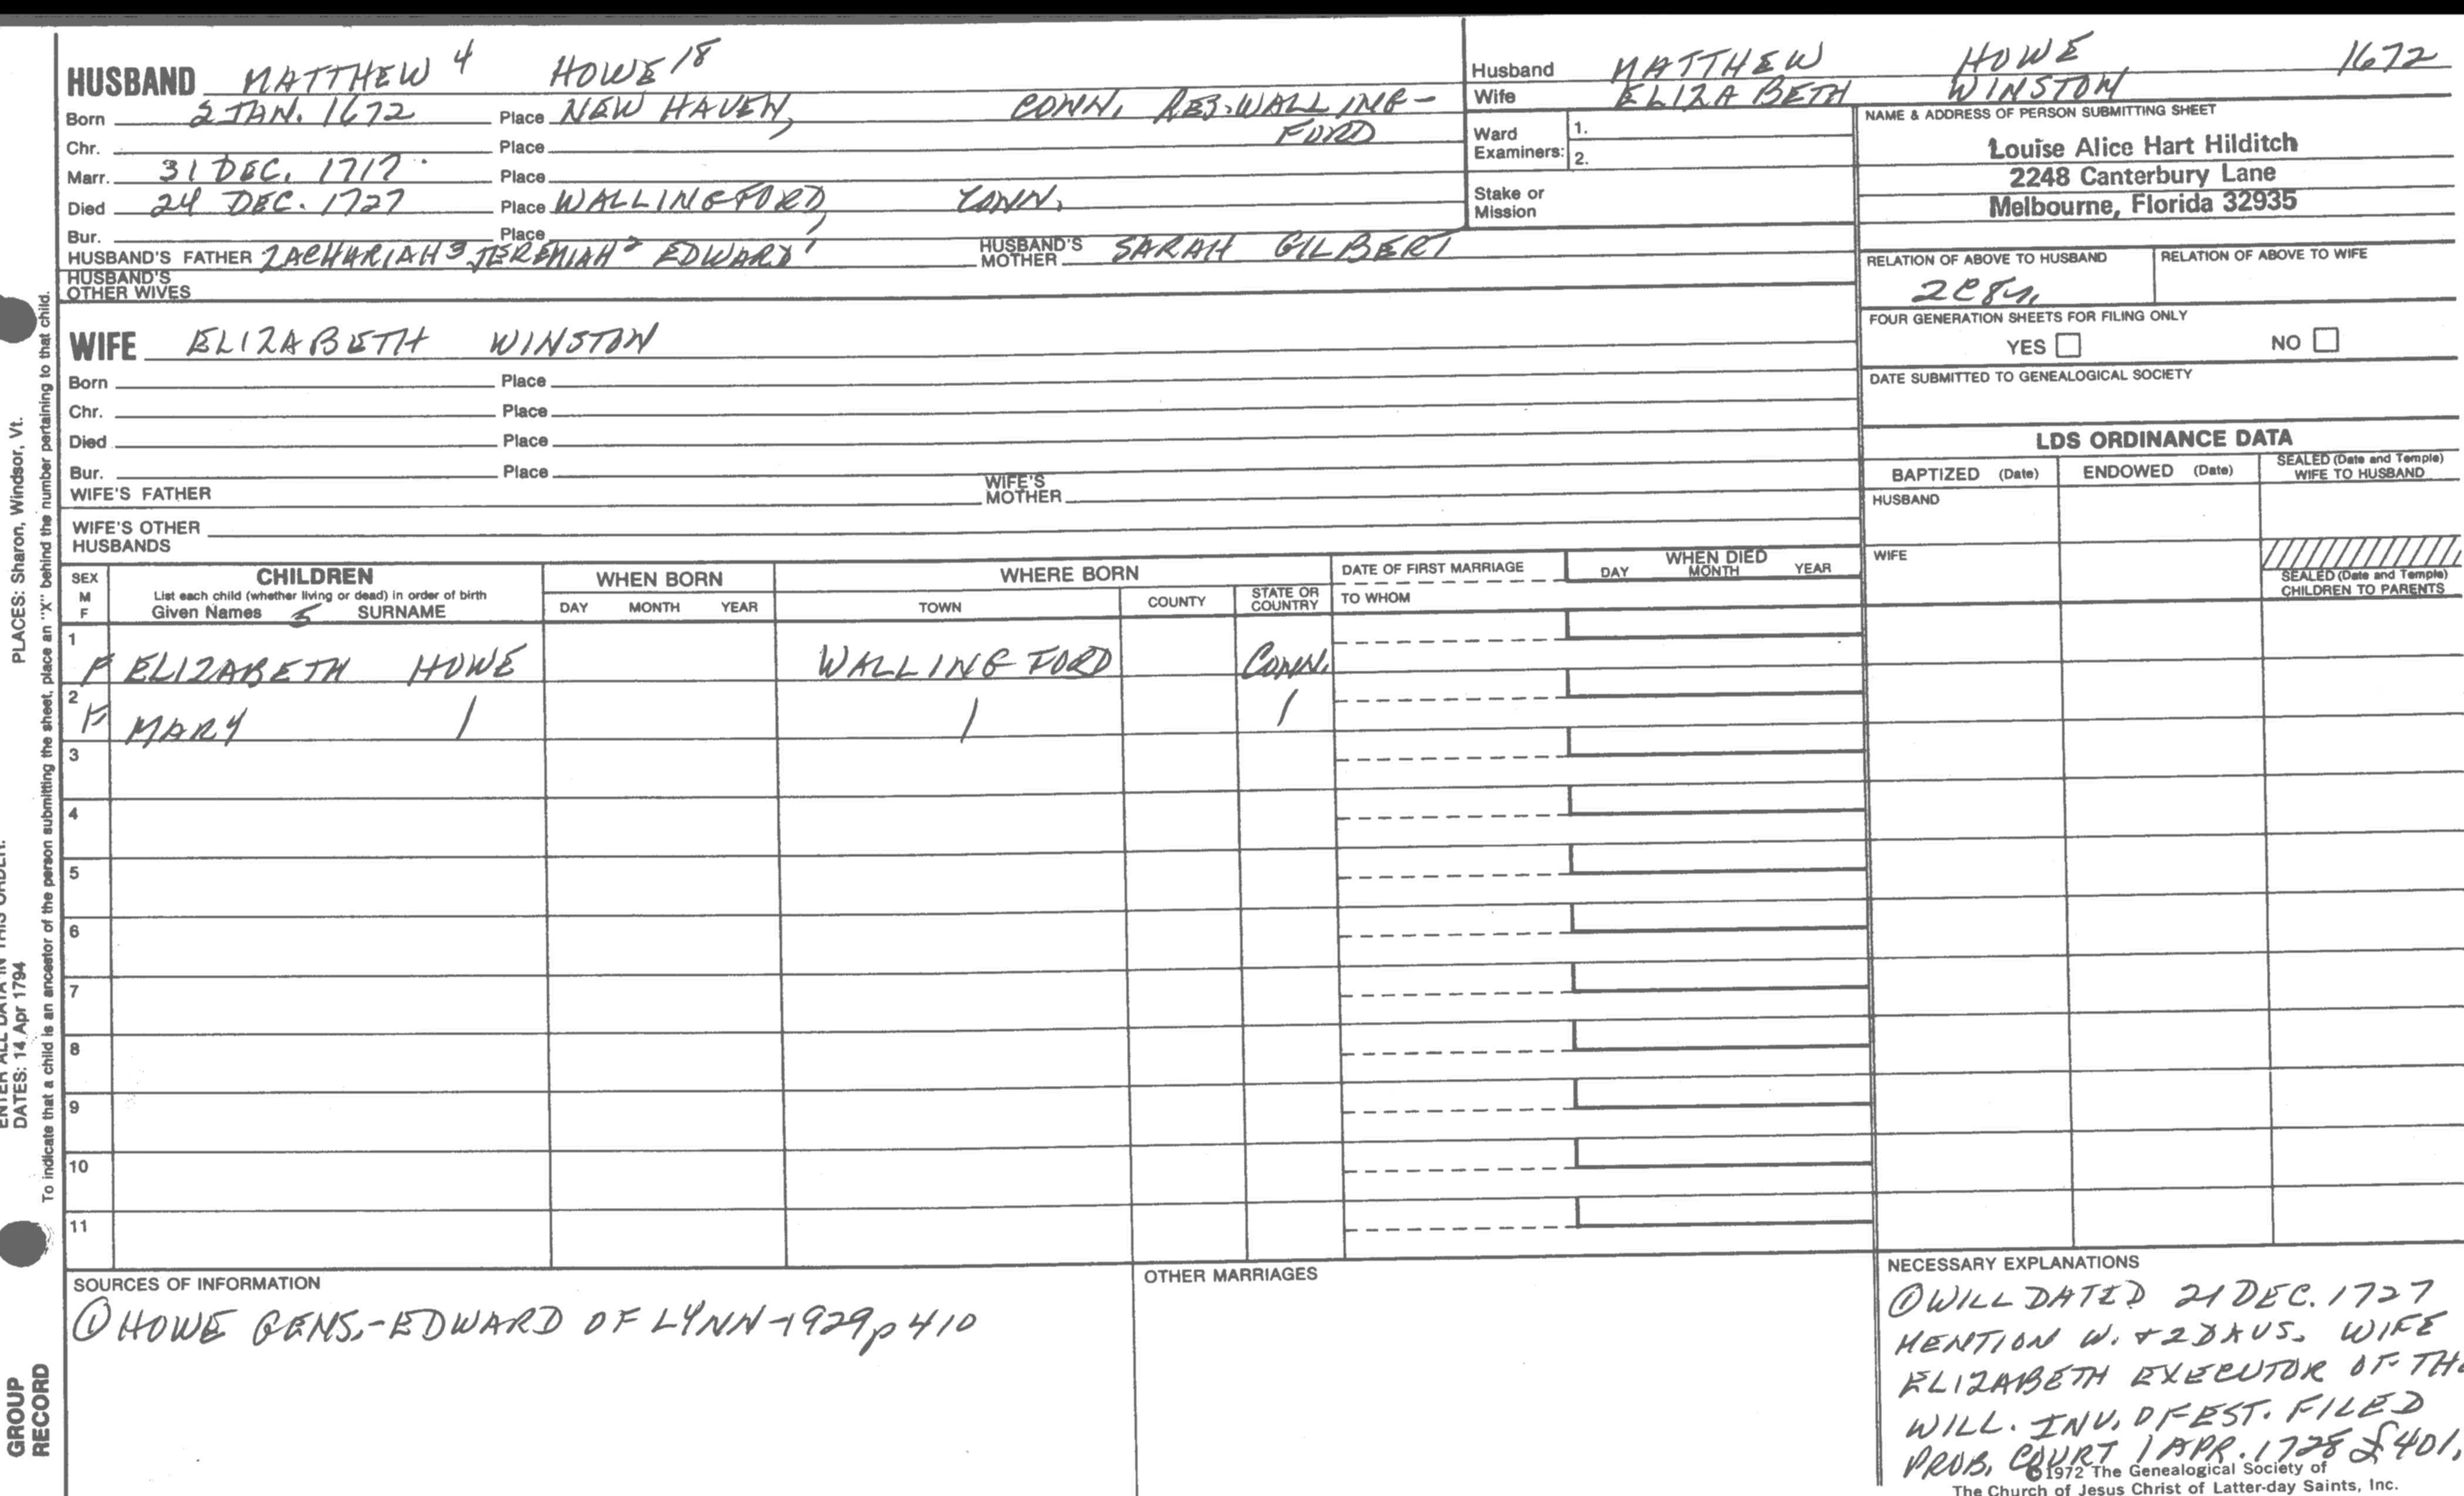 HUSBAND MATTHEW 4 HOWE 18
Born 2 JAN. 1672 Place NEW HAVEN, CONN. RES. WALLING-
FORD
Chr. Place
Marr. 31 DEC. 1717. Place
Died 24 DEC. 1727 Place WALLINGFORD, CONN.
Bur. Place
HUSBAND'S FATHER ZACHARIAH 3 JEREMIAH 2 EDWARD 1 HUSBAND'S MOTHER SARAH GILBERT
HUSBAND'S
OTHER WIVES
WIFE ELIZABETH WINSTON
Born Place
Chr. Place
Died Place
Bur. Place
WIFE'S FATHER WIFE'S MOTHER
WIFE'S OTHER
HUSBANDS
Husband MATTHEW HOWE 1672
Wife ELIZABETH WINSTON
Ward
Examiners:
1.
2.
Stake or
Mission
NAME & ADDRESS OF PERSON SUBMITTING SHEET
Louise Alice Hart Hilditch
2248 Canterbury Lane
Melbourne, Florida 32935
RELATION OF ABOVE TO HUSBAND RELATION OF ABOVE TO WIFE
FOUR GENERATION SHEETS FOR FILING ONLY
YES NO
DATE SUBMITTED TO GENEALOGICAL SOCIETY
LDS ORDINANCE DATA
BAPTIZED (Date) ENDOWED (Date) SEALED (Date and Temple)
WIFE TO HUSBAND
HUSBAND
WIFE
SEALED (Date and Temple)
CHILDREN TO PARENTS
SEX
M
F
CHILDREN
List each child (whether living or dead) in order of birth
Given Names 5 SURNAME
WHEN BORN
DAY MONTH YEAR
WHERE BORN
TOWN COUNTY STATE OR COUNTRY
DATE OF FIRST MARRIAGE
TO WHOM
WHEN DIED
DAY MONTH YEAR
1
F ELIZABETH HOWE WALLINGFORD CONN.
2
F MARY / / /
3
4
5
6
7
8
9
10
11
SOURCES OF INFORMATION
① HOWE GENS.-EDWARD OF LYNN-1929 p 410
OTHER MARRIAGES
NECESSARY EXPLANATIONS
① WILL DATED 21 DEC. 1727
MENTION W. + 2 DAUS. WIFE
ELIZABETH EXECUTOR OF THE
WILL. INV. OF EST. FILED
PROB. COURT 1 APR. 1728 £401.
©1972 The Genealogical Society of
The Church of Jesus Christ of Latter-day Saints, Inc.
PLACES: Sharon, Windsor, Vt.
ENTER ALL DATA IN THIS ORDER:
DATES: 14 Apr 1794
To indicate that a child is an ancestor of the person submitting the sheet, place an "X" behind the number pertaining to that child.
GROUP
RECORD